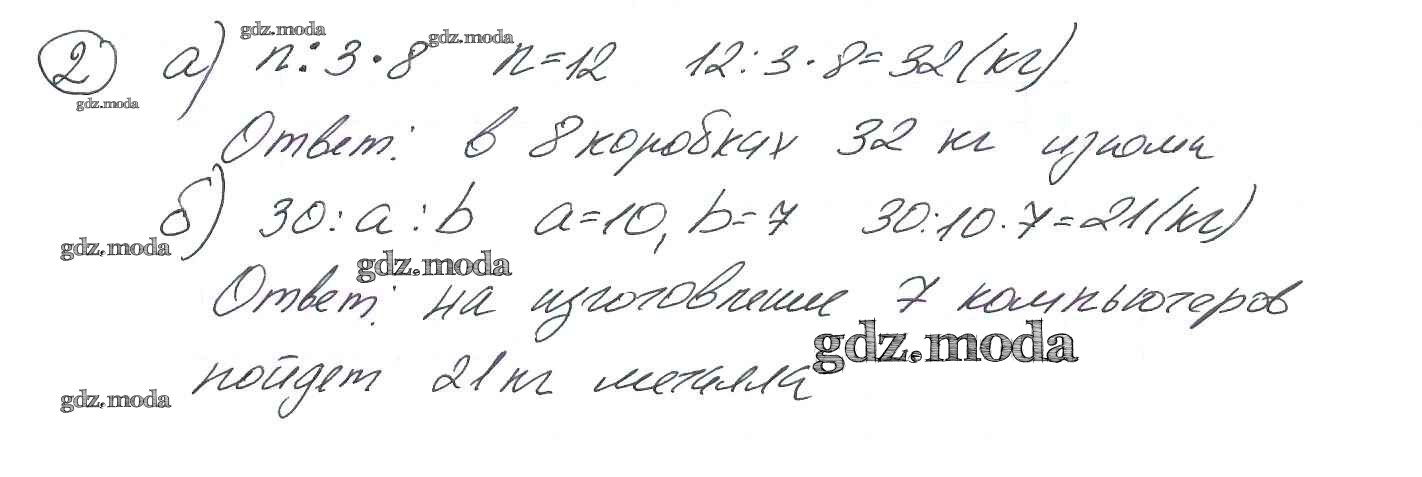 ② а) n : 3 · 8 n = 12 12 : 3 · 8 = 32 (кг)
Ответ: в 8 коробках 32 кг изюма
б) 30 : a : b a = 10, b = 7 30 : 10 · 7 = 21 (кг)
Ответ: на изготовление 7 компьютеров
пойдет 21 кг металла
gdz.moda
gdz.moda
gdz.moda
gdz.moda
gdz.moda
gdz.moda
gdz.moda